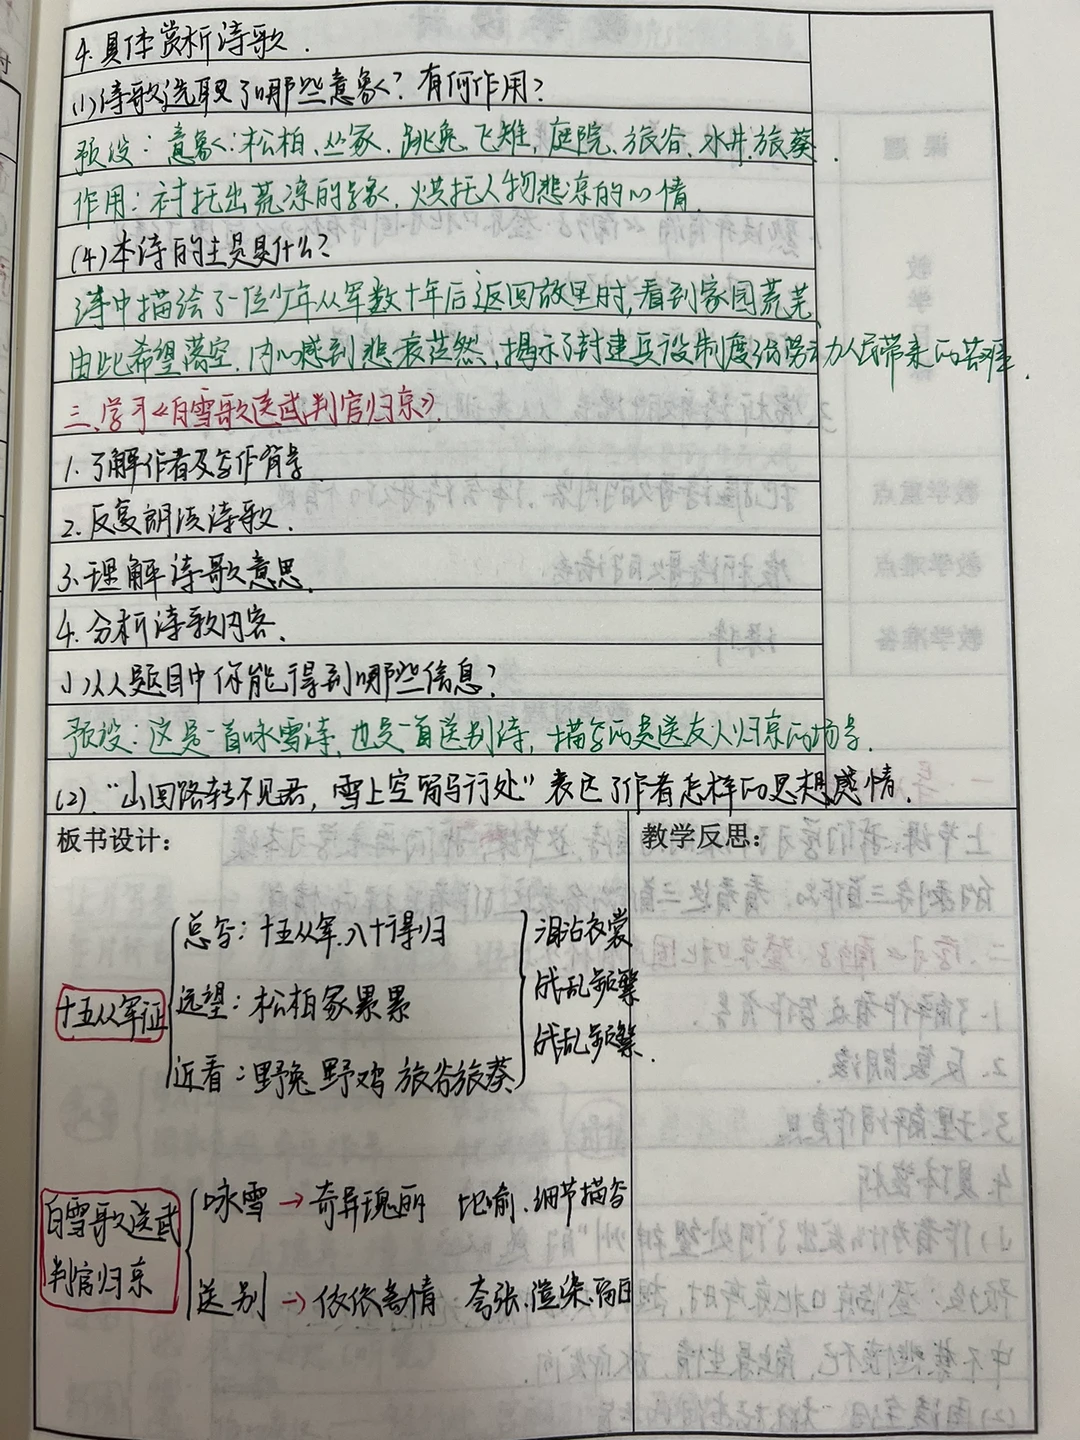 4.具体赏析诗歌.
(1)诗歌选取了哪些意象?有何作用?
预设:意象:松柏、丛冢、跳兔、飞雉、庭院、旅谷、水井、旅葵.
作用:衬托出荒凉的景象,烘托人物悲凉的心情.
(4)本诗的主旨是什么?
诗中描绘了一位少年从军数十年后返回故里时,看到家园荒芜,
由此希望落空,内心感到悲哀茫然,揭示了封建兵役制度给劳动力人民带来的苦难.
三、学习《白雪歌送武判官归京》.
1.了解作者及写作背景
2.反复朗读诗歌.
3.理解诗歌意思.
4.分析诗歌内容.
(1)从题目中你能得到哪些信息?
预设:这是一首咏雪诗,也是一首送别诗,描写的是送友人归京的场景.
(2)."山回路转不见君,雪上空留马行处"表达了作者怎样的思想感情.
板书设计:
十五从军征
总写:十五从军.八十得归
远望:松柏冢累累
近看:野兔 野鸡 旅谷旅葵
泪沾衣裳
战乱频繁
战乱频繁.
白雪歌送武
判官归京
咏雪→奇异瑰丽 比喻.细节描写
送别→依依惜情 夸张.渲染.留白
教学反思: